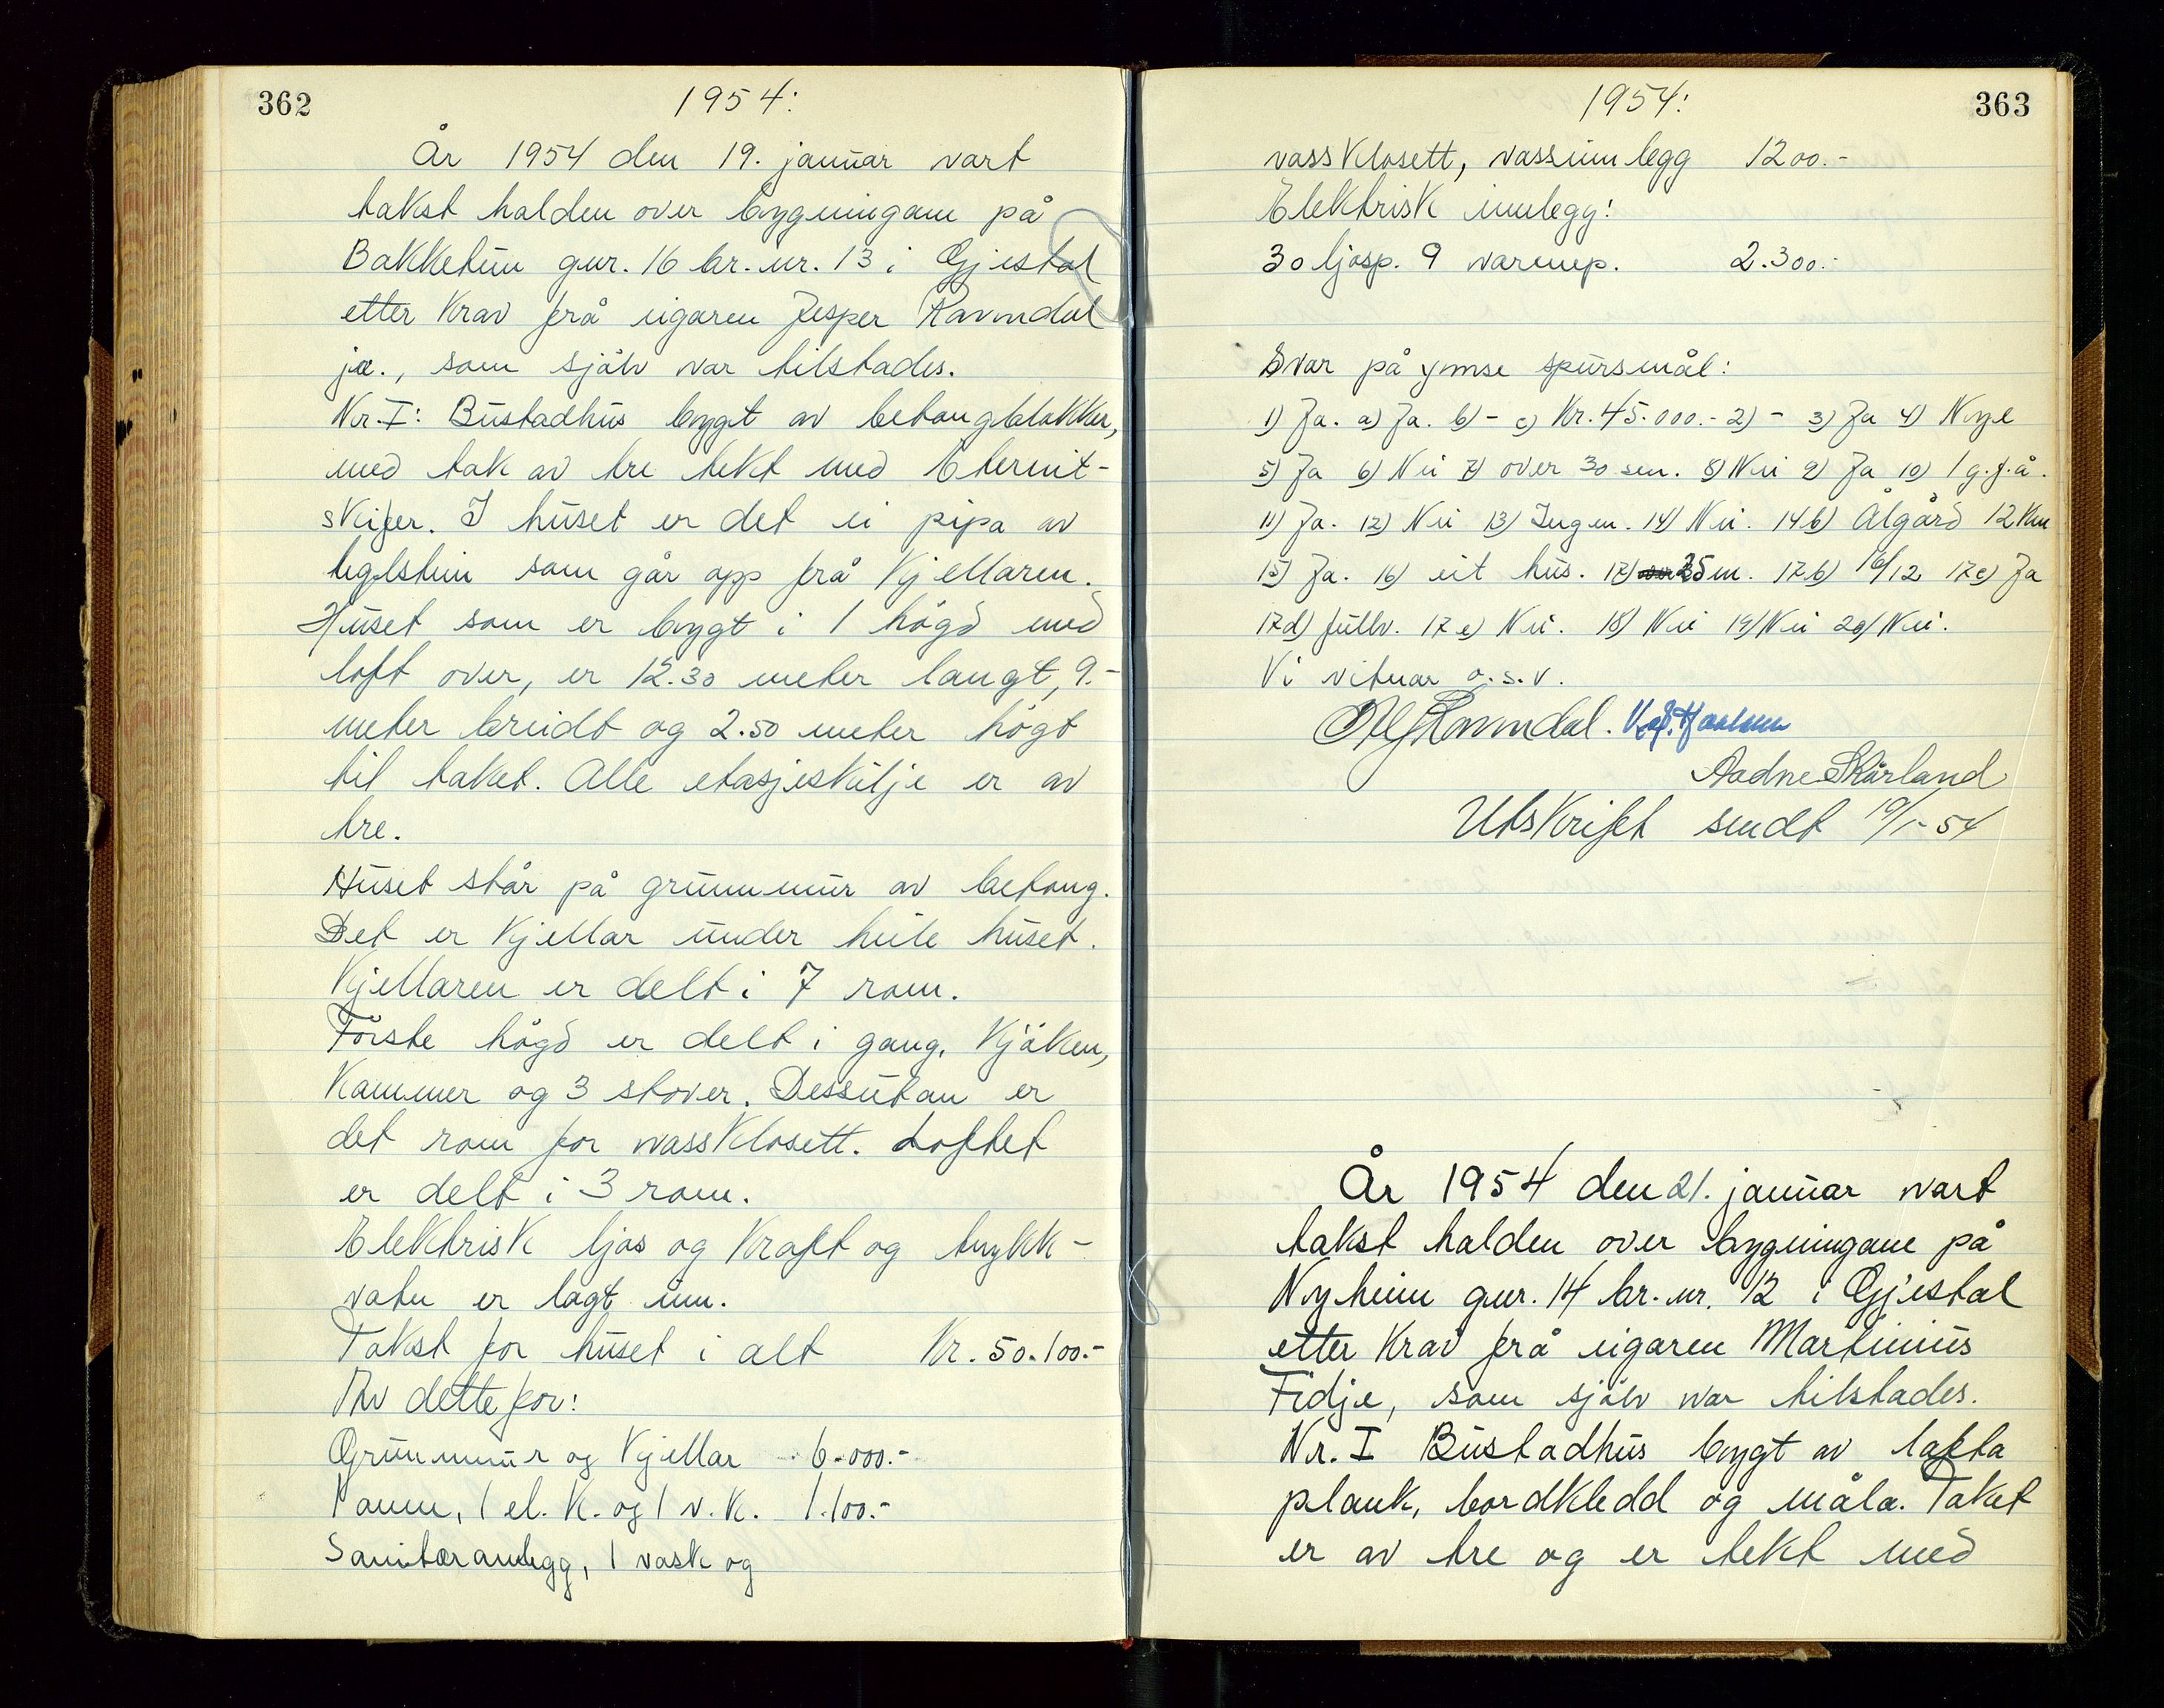 362
1954:
År 1954 den 19. januar vart
takst halden over bygningane på
Bakketun gnr. 16 br. nr. 13 i Gjestal
etter krav frå eigaren Jesper Ravndal
jr., som sjølv var tilstades.
Nr. I: Bustadhus bygt av betongblokker,
med tak av tre tekt med Eternit-
skifer. I huset er det ei pipa av
teglstein som går opp frå kjellaren.
Huset som er bygt i 1 høgd med
loft over, er 12.30 meter langt, 9.-
meter breidt og 2.50 meter høgt
til taket. Alle etasjeskilje er av
tre.
Huset står på grunnmur av betong.
Det er kjellar under heile huset.
Kjellaren er delt i 7 rom.
Første høgd er delt i gang, kjøken,
kammer og 3 stover. Dessutan er
det rom for vassklosett. Loftet
er delt i 3 rom.
Elektrisk ljos og kraft og trykk-
vatn er lagt inn.
Takst for huset i alt Kr. 50.100.-
Av dette for:
Grunnmur og kjellar 6.000.-
1 ovnn, 1 el. k. og 1 v. k. 1.100.-
Sanitæranlegg, 1 vask og
1954:
363
vassklosett, vassinnlegg 1200.-
Elektrisk innlegg:
30 ljosp. 9 varmep. 2.300.-
Svar på ymse spursmål:
1) Ja. a) Ja. b) - c) Kr. 45.000.- 2) - 3) Ja 4) Nye
5) Ja 6) Nei 7) over 30 sm. 8) Nei 9) Ja 10) 1 g.f.å.
11) Ja. 12) Nei 13) Ingen. 14) Nei. 14b) Ålgård 12 km
15) Ja. 16) eit hus. 17) 25 m. 17b) 16/12 17c) Ja
17d) fullv. 17e) Nei. 18) Nei 19) Nei 20) Nei.
Vi vitnar o.s.v.
Ravndal.
Aadne Skårland
Utskrift sendt 19/1-54
År 1954 den 21. januar vart
takst halden over bygningane på
Nyheim gnr. 14 br. nr. 12 i Gjestal
etter krav frå eigaren Martinius
Fidje, som sjølv var tilstades.
Nr. I Bustadhus bygt av lafta
plank, bordkledd og måla. Taket
er av tre og er tekt med